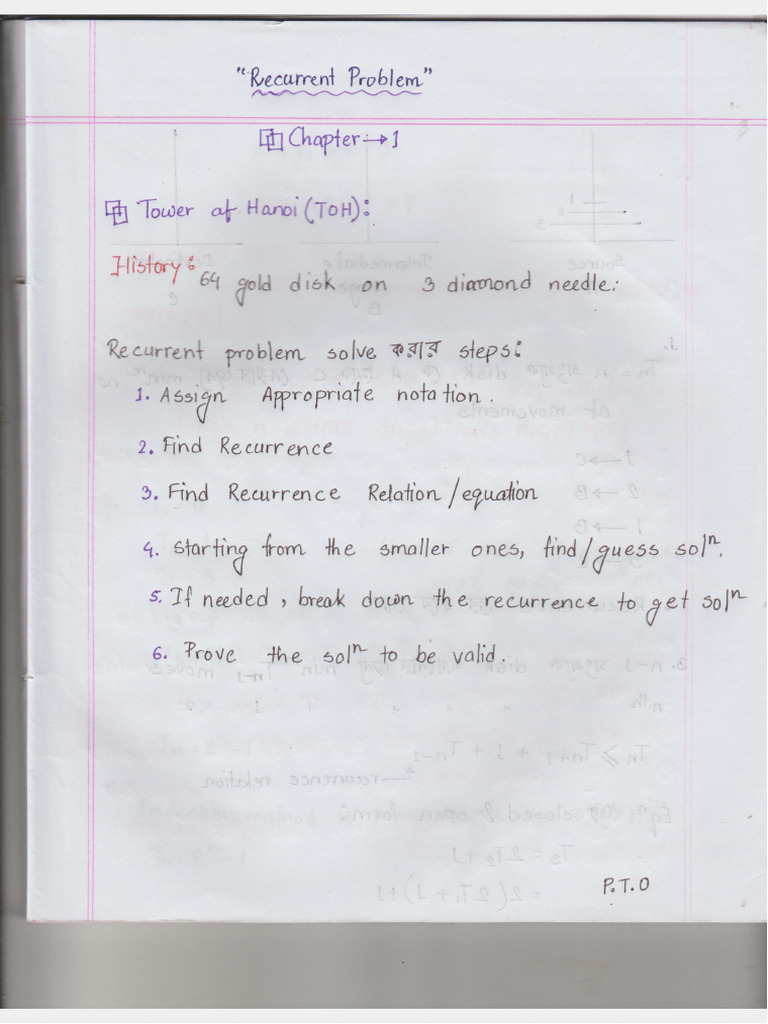 "Recurrent Problem"
Chapter → 1
Tower of Hanoi (TOH):
History: 64 gold disk on 3 diamond needle.
Recurrent problem solve করার steps:
1. Assign Appropriate notation.
2. Find Recurrence
3. Find Recurrence Relation/equation
4. Starting from the smaller ones, find/guess solⁿ.
5. If needed, break down the recurrence to get solⁿ
6. Prove the solⁿ to be valid.
P.T.O